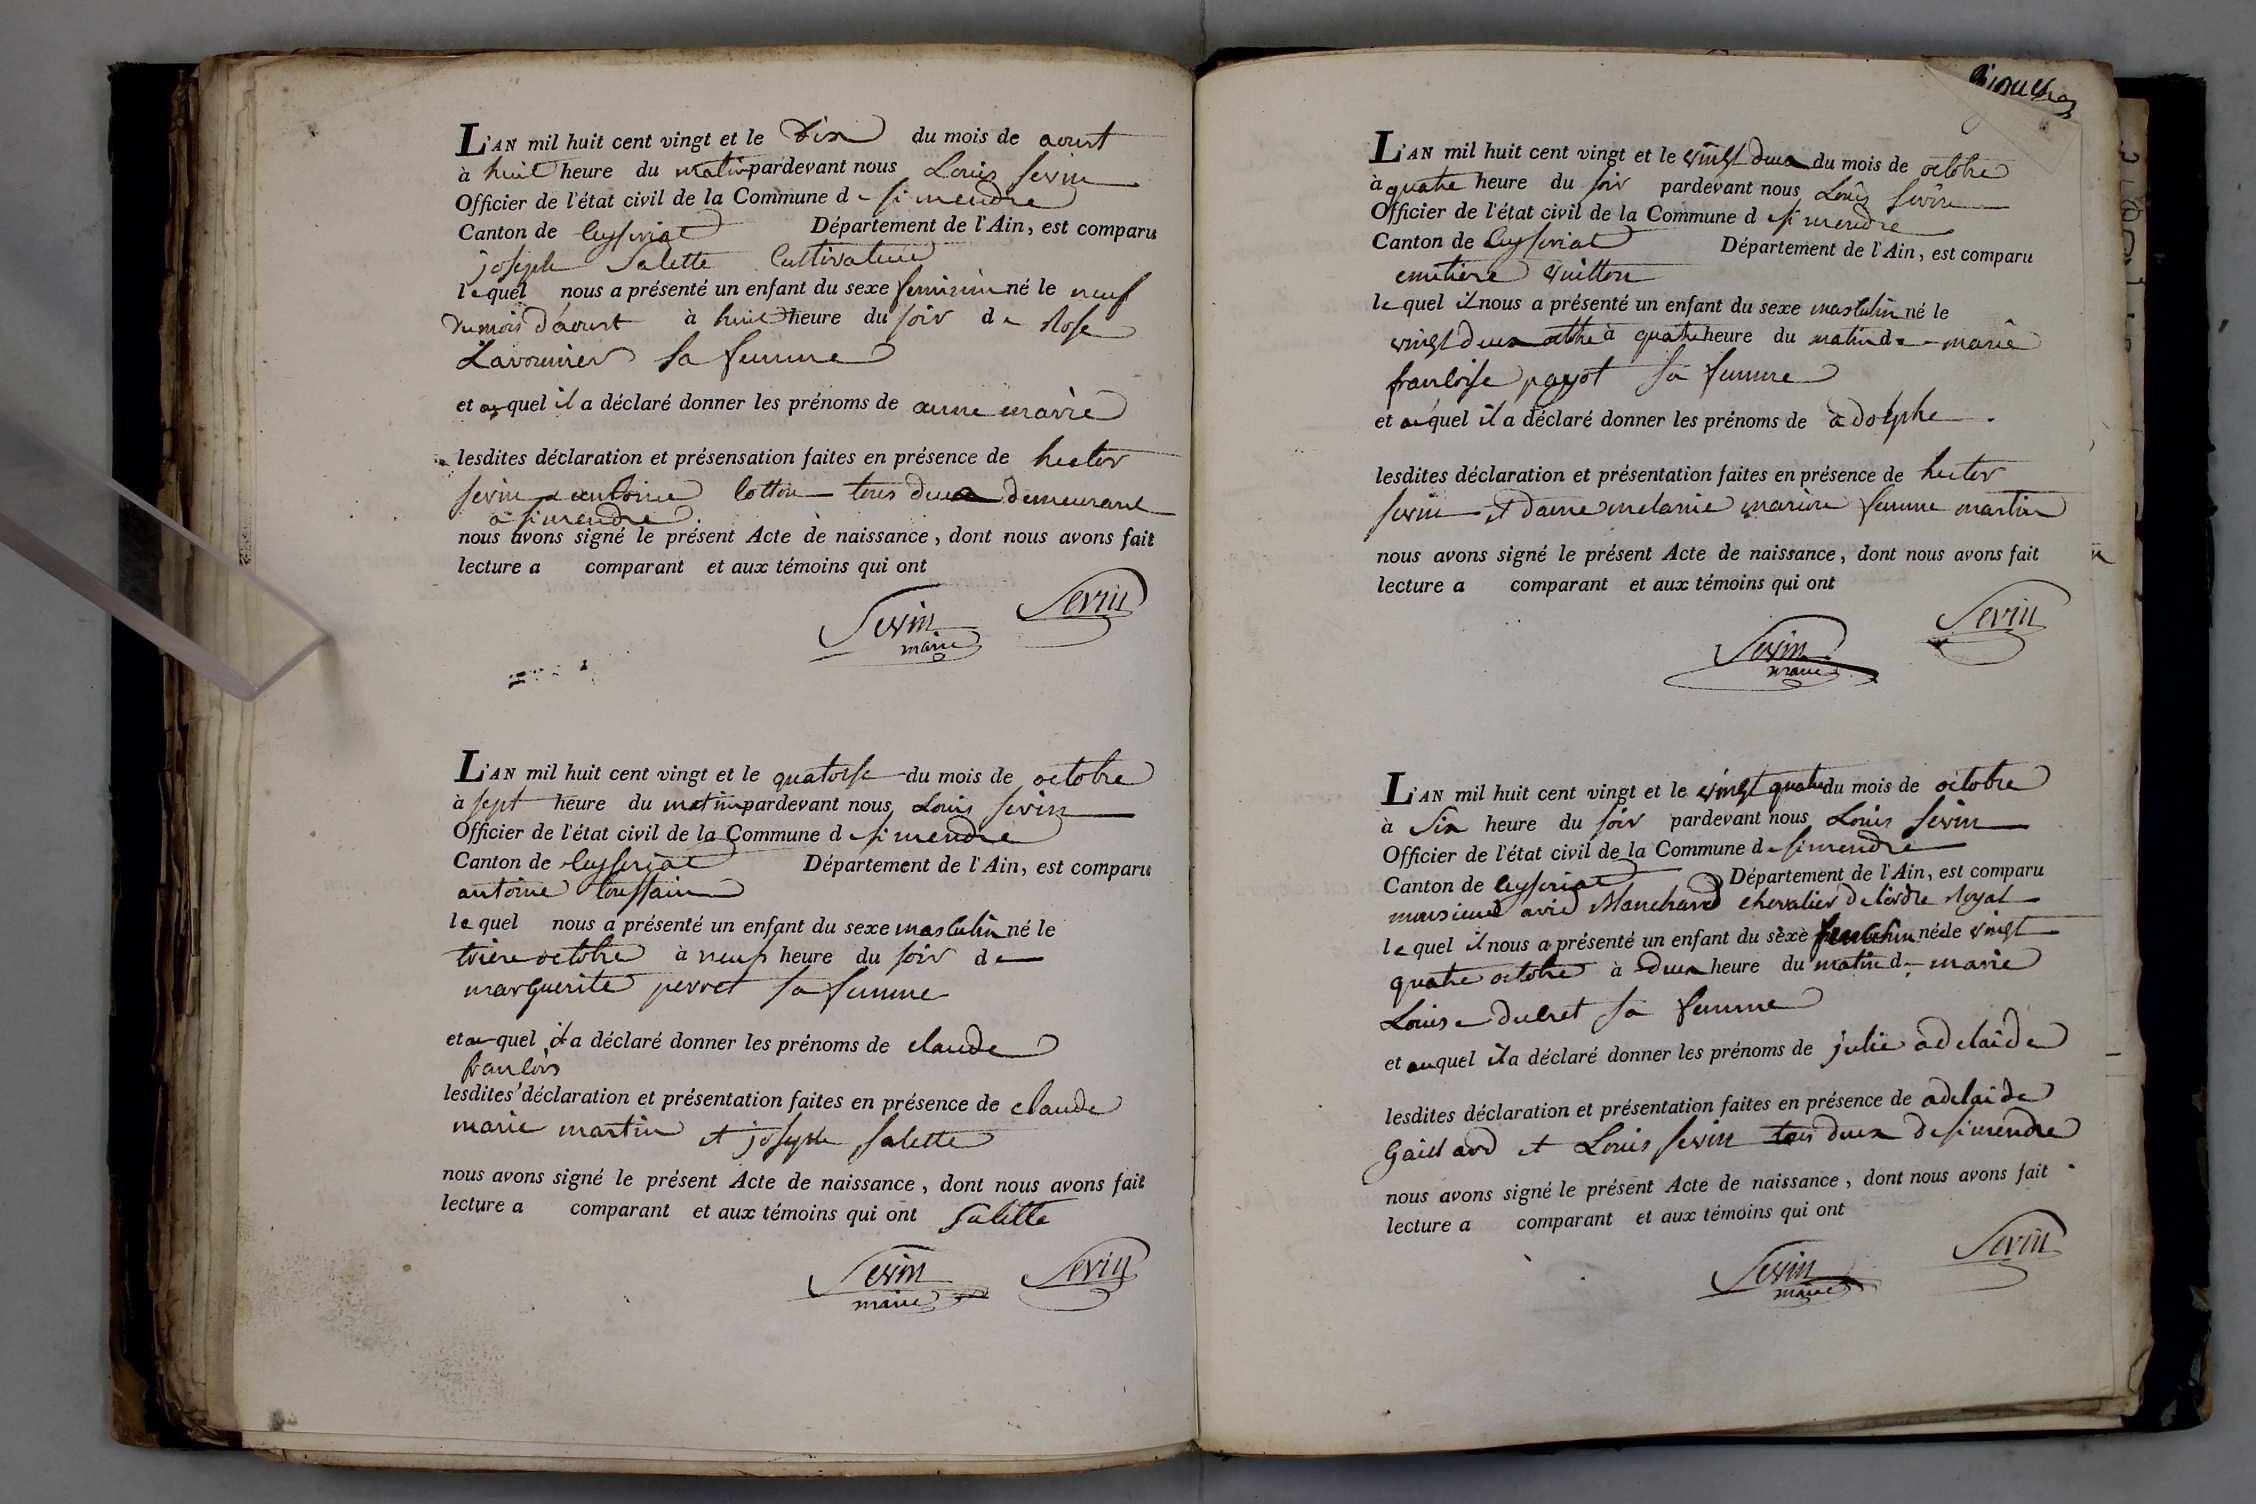 L'AN mil huit cent vingt et le dix du mois de aoust
à huit heure du matin pardevant nous Louis sevin
Officier de l'état civil de la Commune de simendre
Canton de Ceyseriat Département de l'Ain, est comparu
joseph Salette Cultivateur
lequel nous a présenté un enfant du sexe feminin né le neuf
du mois d'aoust à huit heure du soir de Rose
Lavounier sa femme
et auquel il a déclaré donner les prénoms de anne marie
lesdites déclaration et présensation faites en présence de hector
sevin et antoine Cotton tous deux demeurant
à simendre
nous avons signé le présent Acte de naissance, dont nous avons fait
lecture a comparant et aux témoins qui ont
Sevin Sevin
maire
L'AN mil huit cent vingt et le quatorse du mois de octobre
à sept heure du matin pardevant nous Louis sevin
Officier de l'état civil de la Commune de simendre
Canton de Ceyseriat Département de l'Ain, est comparu
antoine toussain
lequel nous a présenté un enfant du sexe masculin né le
treise octobre à neuf heure du soir de
marguerite perret sa femme
et auquel il a déclaré donner les prénoms de claude
francois
lesdites déclaration et présentation faites en présence de claude
marie martin et joseph salette
nous avons signé le présent Acte de naissance, dont nous avons fait
lecture a comparant et aux témoins qui ont Salette
Sevin Sevin
maire
L'AN mil huit cent vingt et le vingt deux du mois de octobre
à quatre heure du soir pardevant nous Louis sevin
Officier de l'état civil de la Commune de simendre
Canton de Ceyseriat Département de l'Ain, est comparu
vuitton
lequel il nous a présenté un enfant du sexe masculin né le
vingt deux octbre à quatre heure du matin de marie
francoise payot sa femme
et auquel il a déclaré donner les prénoms de adolphe
lesdites déclaration et présentation faites en présence de hector
sevin et dame melanie femme martin
nous avons signé le présent Acte de naissance, dont nous avons fait
lecture a comparant et aux témoins qui ont
Sevin Sevin
maire
L'AN mil huit cent vingt et le vingt quatre du mois de octobre
à Six heure du soir pardevant nous Louis sevin
Officier de l'état civil de la Commune de simendre
Canton de Ceyseriat Département de l'Ain, est comparu
monsieur Manchand chevalier de lordre Royal
lequel il nous a présenté un enfant du sexe né le vingt
quatre octobre à deux heure du matin de marie
Louise ducret sa femme
et auquel il a déclaré donner les prénoms de julie adelaide
lesdites déclaration et présentation faites en présence de adelaide
Gaillard et Louis sevin tous deux de simendre
nous avons signé le présent Acte de naissance, dont nous avons fait
lecture a comparant et aux témoins qui ont
Sevin Sevin
maire